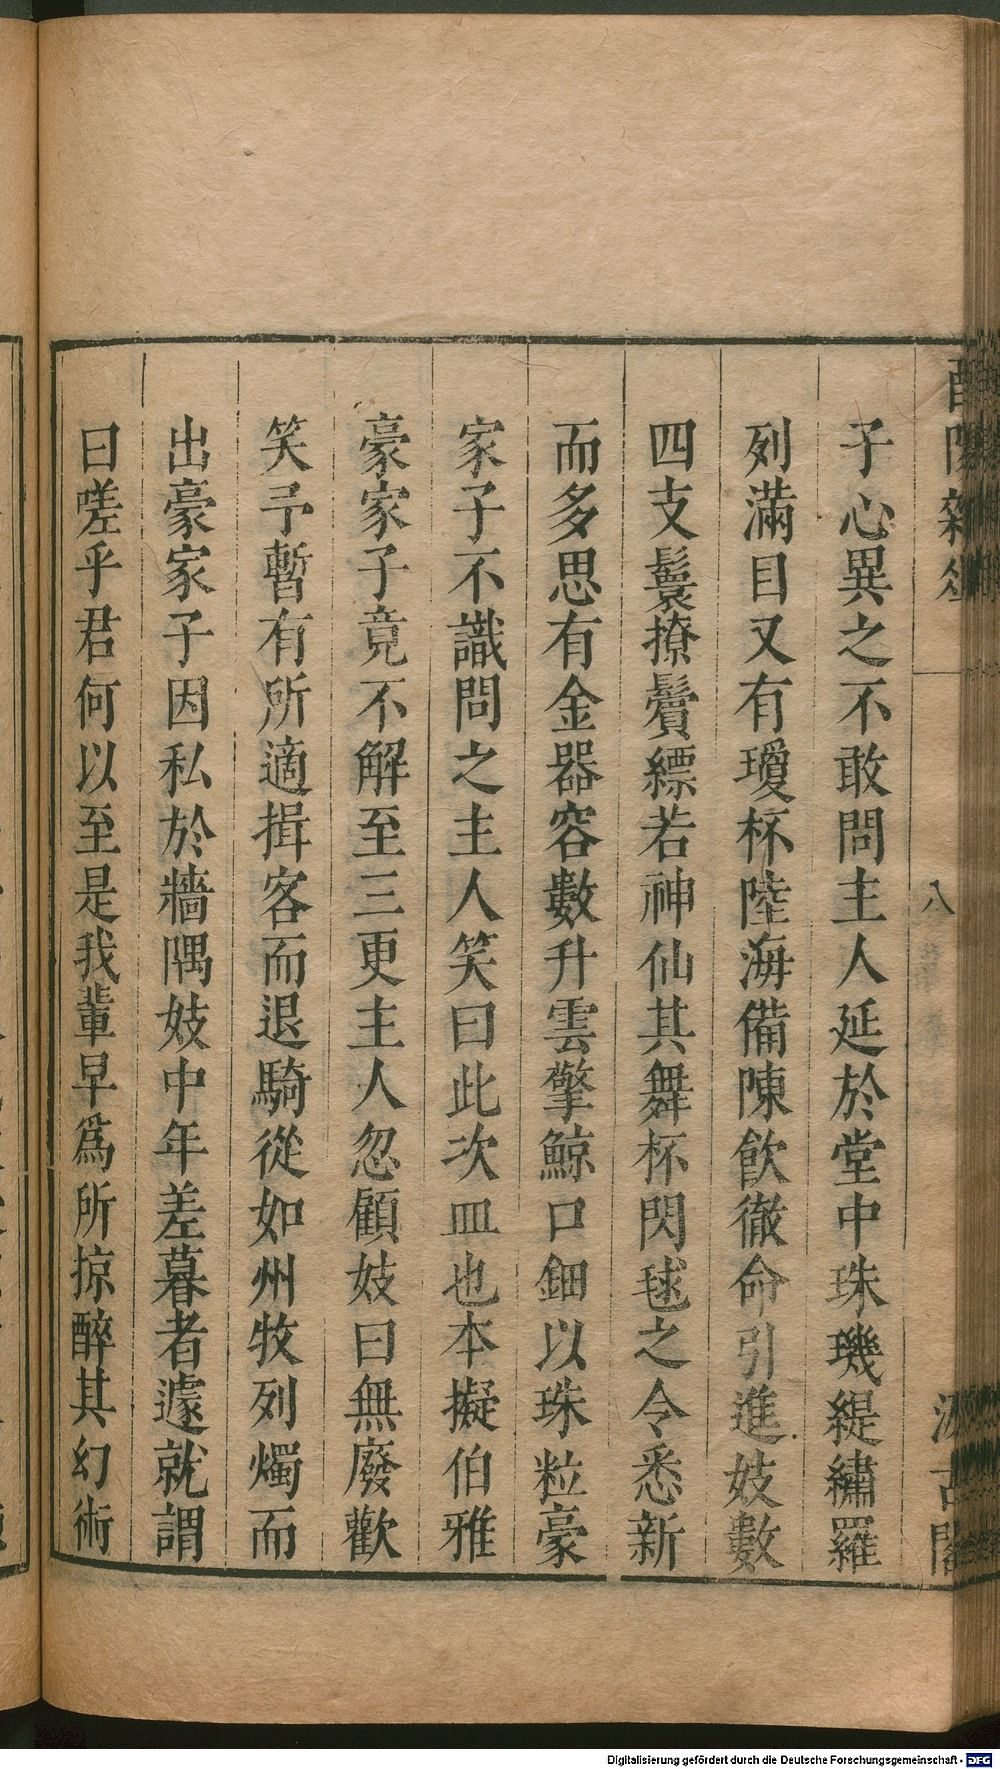 酉陽雜俎
八
汲古閣
子心異之不敢問主人延於堂中珠璣緹繡羅
列滿目又有瓊杯陸海備陳飲徹命引進妓數
四支鬟撩鬢縹若神仙其舞杯閃毬之令悉新
而多思有金器容數升雲擎鯨口鈿以珠粒豪
家子不識問之主人笑曰此次皿也本擬伯雅
豪家子竟不解至三更主人忽顧妓曰無廢歡
笑予暫有所適揖客而退騎從如州牧列燭而
出豪家子因私於牆隅妓中年差暮者遽就謂
曰嗟乎君何以至是我輩早爲所掠醉其幻術
Digitalisierung gefördert durch die Deutsche Forschungsgemeinschaft - DFG